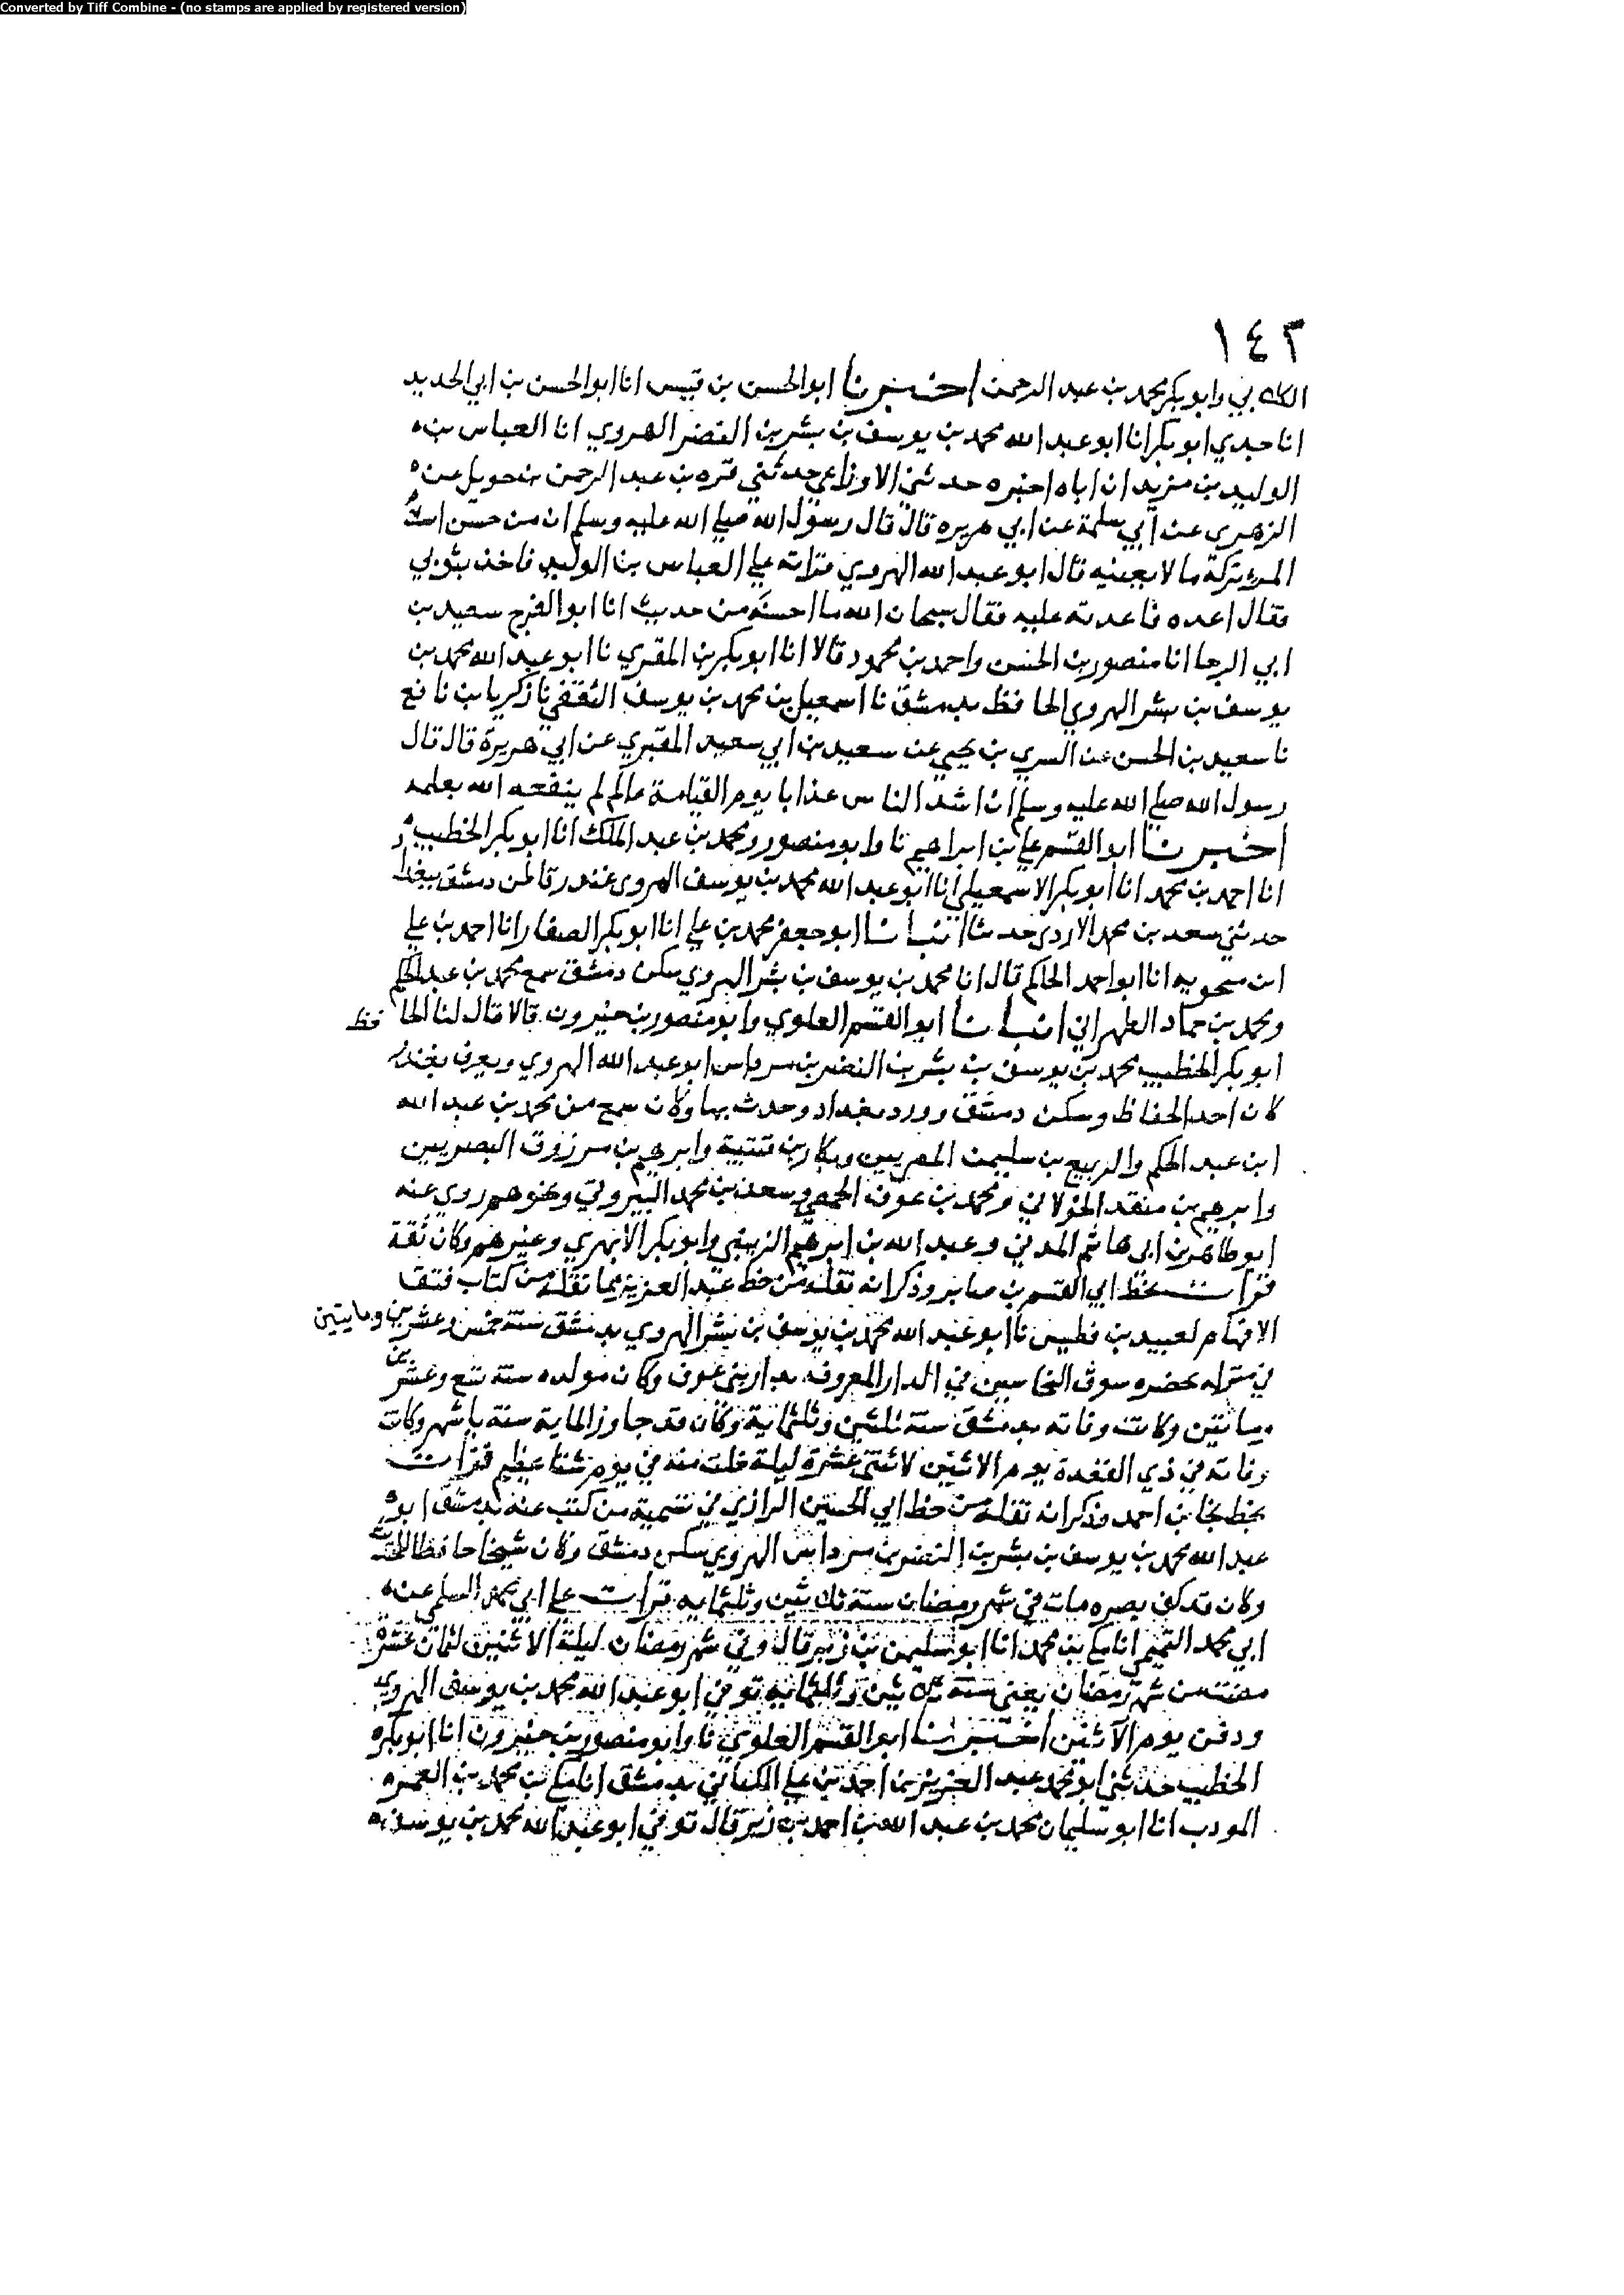 Converted by Tiff Combine - (no stamps are applied by registered version)
١٤٣
الكلابي وابو بكر محمد بن عبد الرحمن اخبرنا ابو الحسن بن قبيس انا ابو الحسن بن ابي الحديد
انا جدي ابو بكر انا ابو عبد الله محمد بن يوسف بن بشر بن النضر الهروي انا العباس بن
الوليد بن مزيد ان اباه اخبره حدثني الاوزاعي حدثني قره بن عبد الرحمن بن حويل عن
الزهري عن ابي سلمة عن ابي هريره قال قال رسول الله صلي الله عليه وسلم ان من حسن اسلام
المرء تركه ما لا يعنيه قال ابو عبد الله الهروي قراته علي العباس بن الوليد فاخذ بثوبي
فقال اعده فاعدته عليه فقال سبحان الله ما احسنه من حديث انا ابو الفرج سعيد بن
ابي الرجا انا منصور بن الحسن واحمد بن محمود قالا انا ابو بكر بن المقري نا ابو عبد الله محمد بن
يوسف بن بشر الهروي الحافظ بدمشق نا اسمعيل بن محمد بن يوسف الثقفي نا زكريا بن نافع
نا سعيد بن الحسن عن السري بن يحيي عن سعيد بن ابي سعيد المقبري عن ابي هريرة قال قال
رسول الله صلي الله عليه وسلم ان اشد الناس عذابا يوم القيامة عالم لم ينفعه الله بعلمه
اخبرنا ابو القسم علي بن ابراهيم نا وابو منصور ومحمد بن عبد الملك انا ابو بكر الخطيب
انا احمد بن محمد انا ابو بكر الاسمعيلي انا ابو عبد الله محمد بن يوسف الهروي غندر قاطن دمشق ببغداد
حدثني سعد بن محمد الازدي حدثنا انبانا ابو جعفر محمد بن علي انا ابو بكر الصفار انا احمد بن علي
ابن منجويه انا ابو احمد الحاكم قال انا محمد بن يوسف بن بشر الهروي سكن دمشق سمع محمد بن عبد الحكم
ومحمد بن حماد الطهراني انبانا ابو القسم العلوي وابو منصور بن خيرون قالا قال لنا الحافظ
ابو بكر الخطيب محمد بن يوسف بن بشر بن النضر بن مرداس ابو عبد الله الهروي ويعرف بغندر
كان احد الحفاظ وسكن دمشق وورد بغداد وحدث بها وكان سمع من محمد بن عبد الله
ابن عبد الحكم والربيع بن سليمن المصريين وبكار بن قتيبة وابرهيم بن مرزوق البصريين
وابرهيم بن منقذ الخولاني ومحمد بن عوف الحمصي وسعد بن محمد البيروتي ونحوهم روي عنه
ابو طاهر بن ابي هاشم المدني وعبد الله بن ابرهيم الزبيبي وابو بكر الابهري وغيرهم وكان ثقة
قرات بخط ابي القسم بن صابر وذكر انه نقله من خط عبد العزيز مما نقله من كتاب فتق
الافهام لعبيد بن فطيس نا ابو عبد الله محمد بن يوسف بن بشر الهروي بدمشق سنة خمس وعشرين ومايتين
في منزله بحضره سوق النخاسين في الدار المعروفه بدار بني عوف وكان مولده سنة تسع وعشرين
ومائتين وكانت وفاته بدمشق سنة ثلثين وثلثمائية وكان قد جاوز الماية سنة باشهر وكانت
وفاته في ذي القعدة يوم الاثنين لاثنتي عشرة ليلة خلت منه في يوم شتا عظيم قرات
بخط نجا بن احمد وذكر انه نقله من خط ابي الحسين الرازي في تسمية من كتب عنه بدمشق ابو
عبد الله محمد بن يوسف بن بشر بن النضر بن مرداس الهروي سكن دمشق وكان شيخا حافظا للحديث
وكان قد كف بصره مات في شهر رمضان سنة ثلاثين وثلثمايه قرات علي ابي محمد السلمي عن
ابي محمد التميمي انا مكي بن محمد انا ابو سليمن بن زبر قال وفي شهر رمضان ليلة الاثنين لثمان عشرة
مضت من شهر رمضان يعني سنة ثلاثين وثلثمائيه توفي ابو عبد الله محمد بن يوسف الهروي
ودفن يوم الاثنين اخبرنا ابو القسم العلوي نا وابو منصور بن خيرون انا ابو بكر
الخطيب حدثني ابو محمد عبد العزيز بن احمد بن علي الكتاني بدمشق انا مكي بن محمد بن الغمر
المودب انا ابو سليمان محمد بن عبد الله بن احمد بن زبر قال توفي ابو عبد الله محمد بن يوسف